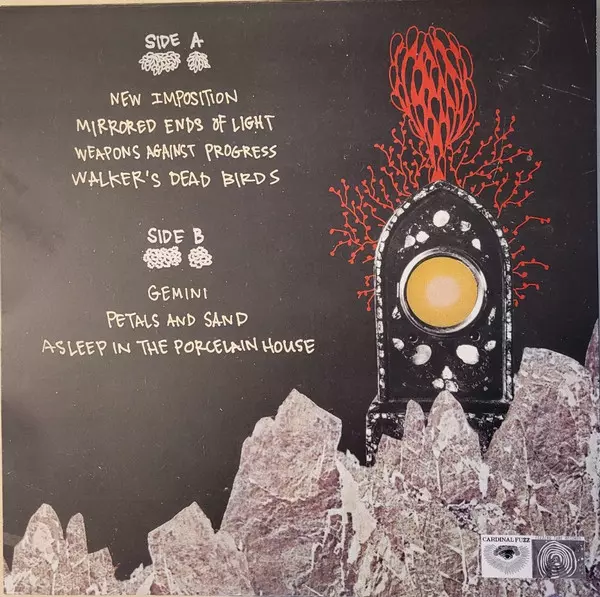 SIDE A
NEW IMPOSITION
MIRRORED ENDS OF LIGHT
WEAPONS AGAINST PROGRESS
WALKER'S DEAD BIRDS
SIDE B
GEMINI
PETALS AND SAND
ASLEEP IN THE PORCELAIN HOUSE
CARDINAL FUZZ